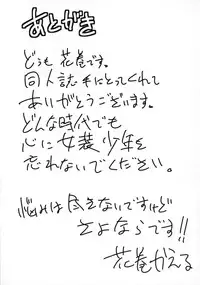 あとがき
どうも 花巻です。
同人誌手にとってくれて
ありがとうございます。
どんな時代でも
心に女装少年を
忘れないでください。
悩みは尽きないですけど
さよならです!!
花巻かえる